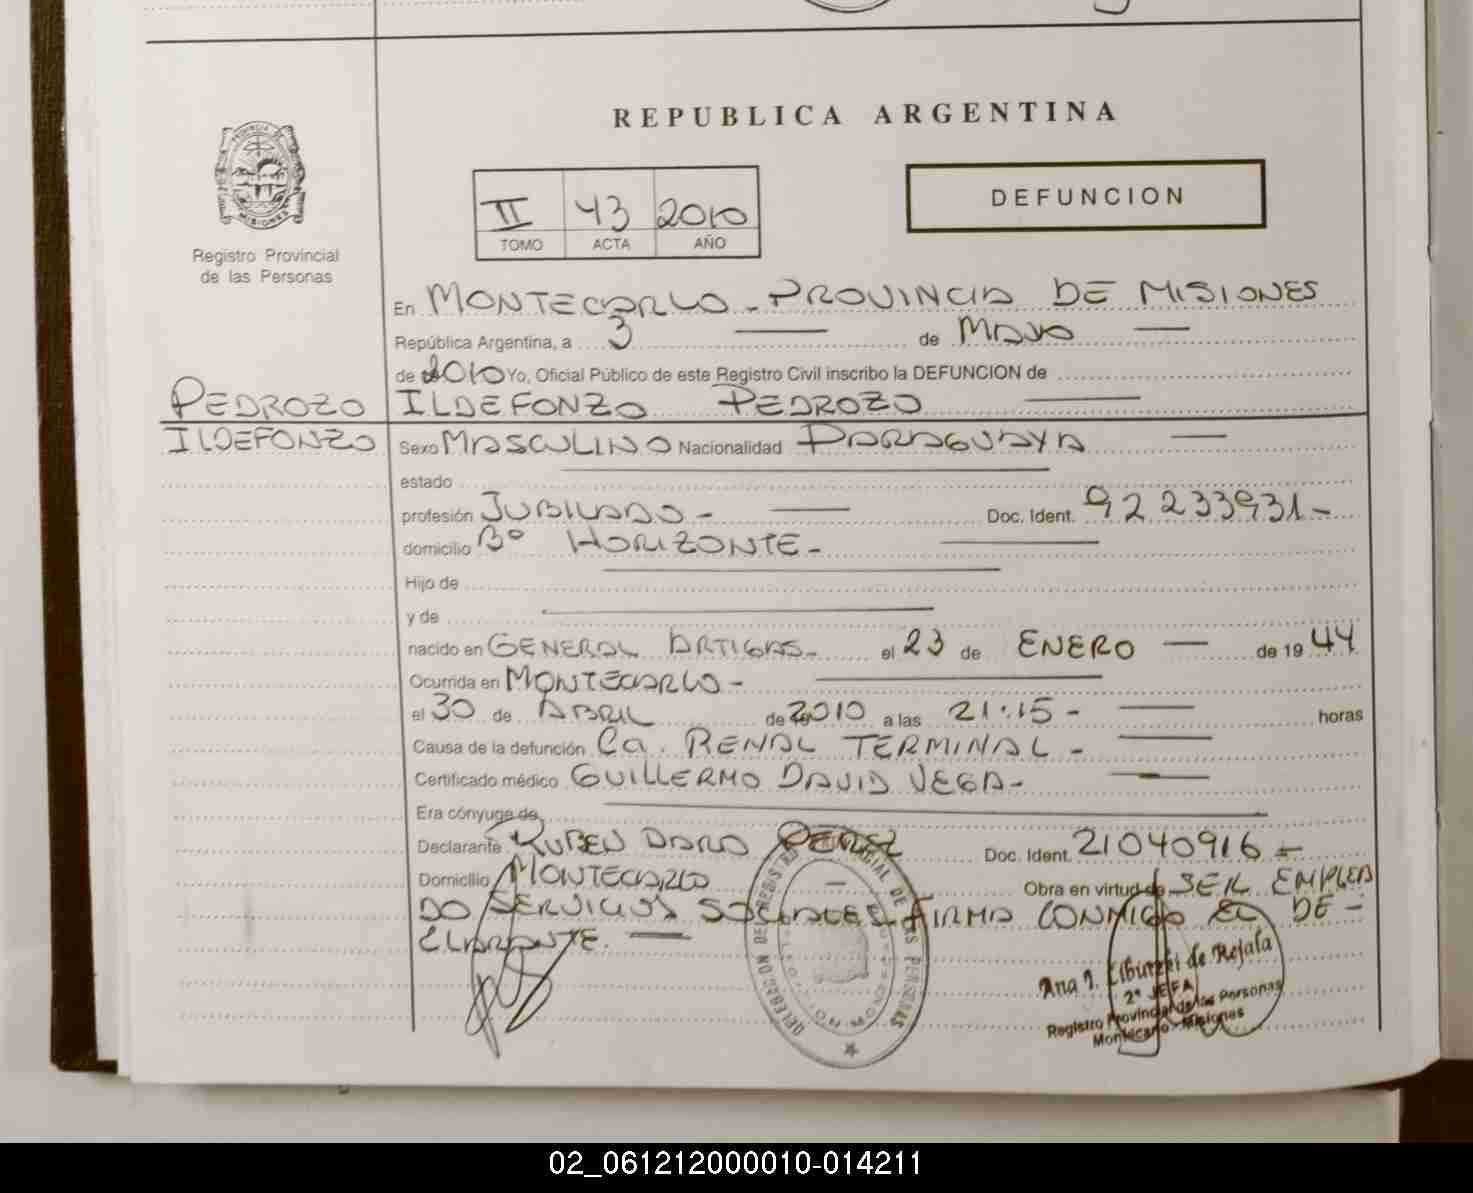 REPUBLICA ARGENTINA
PROVINCIA DE
MISIONES
Registro Provincial
de las Personas
II 43 2010
TOMO ACTA AÑO
DEFUNCION
En MONTECARLO - PROVINCIA DE MISIONES
República Argentina, a 3 de MAYO
de 2010 Yo, Oficial Público de este Registro Civil inscribo la DEFUNCION de
PEDROZO ILDEFONZO PEDROZO
ILDEFONZO Sexo MASCULINO Nacionalidad PARAGUAYA
estado
profesión JUBILADO - Doc. Ident. 92 233931-
domicilio Bº HORIZONTE-
Hijo de
y de
nacido en GENERAL ARTIGAS- el 23 de ENERO de 19 44
Ocurrida en MONTECARLO-
el 30 de ABRIL de 2010 a las 21:15 - horas
Causa de la defunción Ca. RENAL TERMINAL -
Certificado médico GUILLERMO DAVID VEGA-
Era cónyuge de
Declarante RUBEN DARIO PEREZ Doc. Ident. 21040916-
Domicilio MONTECARLO Obra en virtud de SER EMPLEA
DO SERVICIOS SOCIALES FIRMA CONMIGO EL DE-
CLARANTE.
DELEGACION DEL REGISTRO PROVINCIAL DE LAS PERSONAS
Ana I. de Rejala
2º JEFA
Registro Provincial de las Personas
Montecarlo - Misiones
02_061212000010-014211